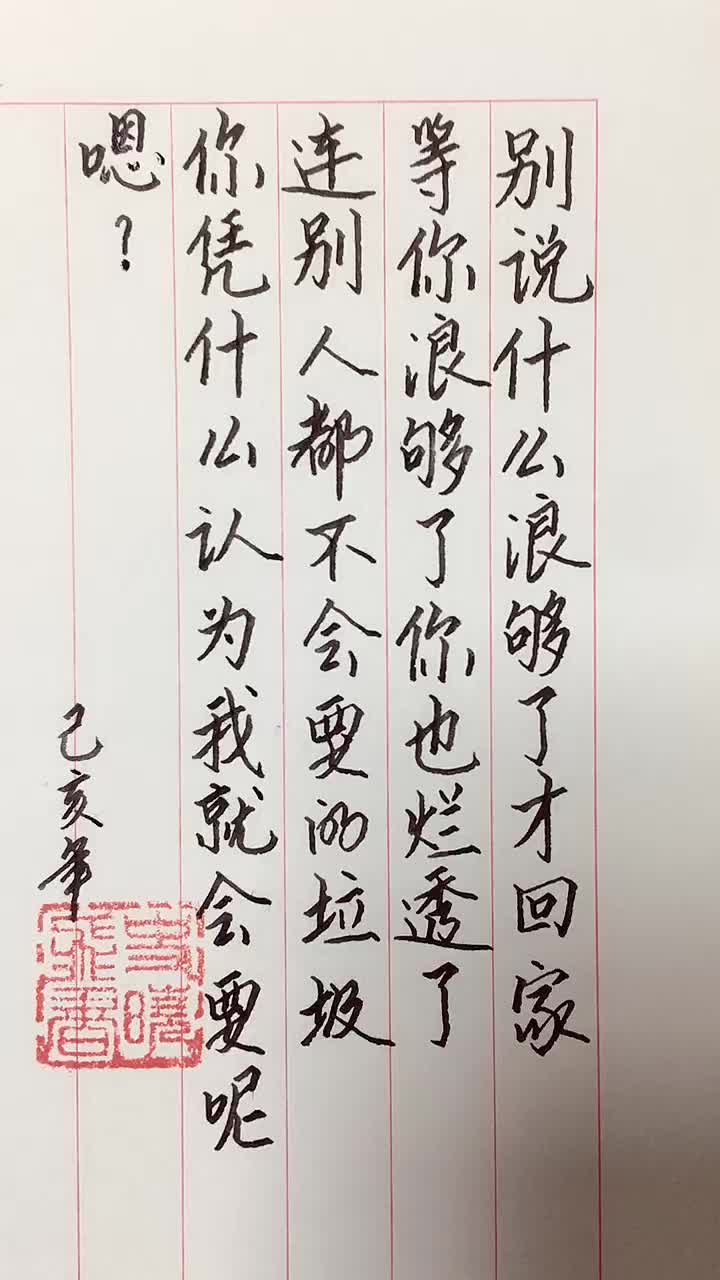 别说什么浪够了才回家
等你浪够了你也烂透了
连别人都不会要的垃圾
你凭什么认为我就会要呢
嗯？
己亥年